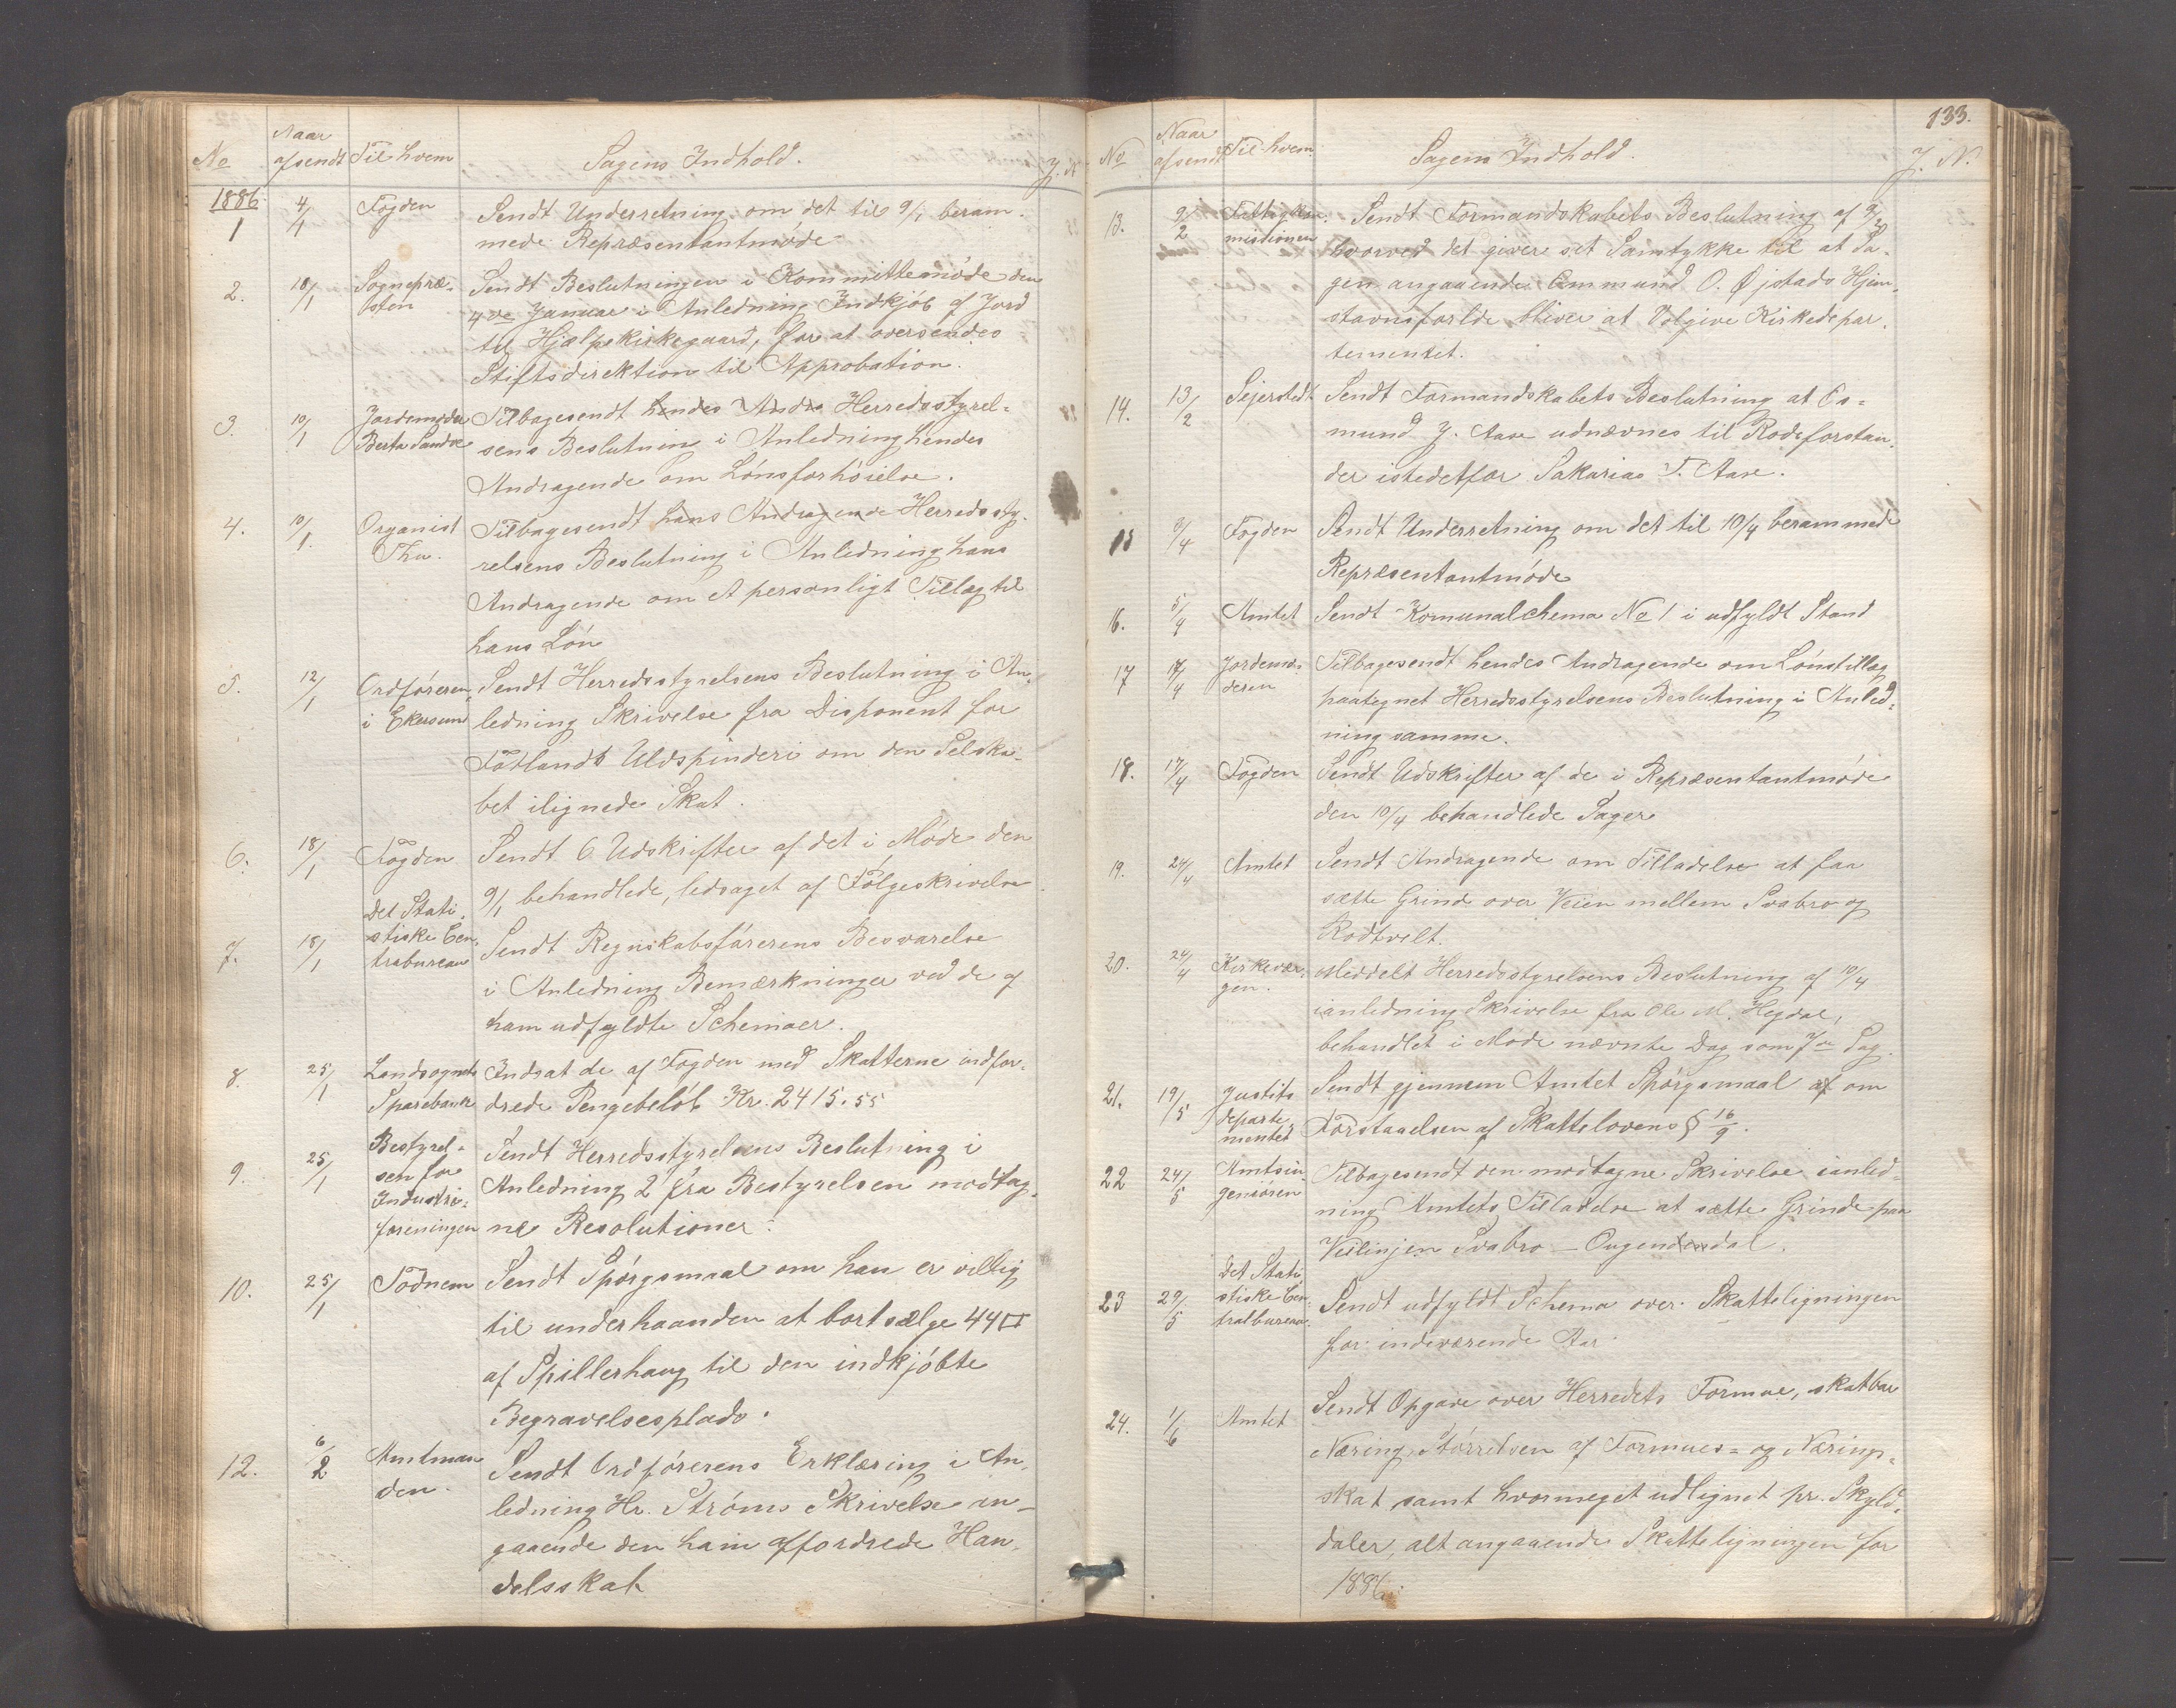 No
Naar afsendt
Til hvem
Sagens Indhold.
J. N
1886.
1
4/1
Fogden
Sendt Underretning om det til 9/1 beram-
mede Repræsentantmøde
2.
10/1
Sognepræ-
sten
Sendt Beslutningen i Kommittemøde den
4de Januar i Anledning Indkjøb af Jord
til Hjælpekirkegaard, for at oversendes
Stiftsdirektion til Approbation.
3.
10/1
Jordemoder
Berta Sande
Tilbagesendt hendes Andra Herredsstyrel-
sens Beslutning i Anledning hendes
Andragende om Lønsforhøielse.
4.
10/1.
Organist
Thu.
Tilbagesendt hans Andragende Herredssty-
relsens Beslutning i Anledning hans
Andragende om et personligt Tillæg til
hans Løn
5.
12/1
Ordføreren
i Ekersund
Sendt Herredsstyrelsens Beslutning i An-
ledning Skrivelse fra Disponent for
Fotlands Uldspinderi om den Selska-
bet ilignede Skat.
6.
18/1
Fogden
Sendt 6 Udskrifter af det i Møde den
9/1 behandlede, ledsaget af Følgeskrivelse.
7.
18/1
Det Stati-
stiske Cen-
trabureau
Sendt Regnskabsførerens Besvarelse
i Anledning Bemærkninger ved de af
ham udfyldte Schemaer.
8.
25/1
Landsognets
Sparebank
Indsat de af Fogden med Skatterne indfor-
drede Pengebeløb Kr. 2415.55
9.
25/1
Bestyrel-
sen for
Industri-
foreningen
Sendt Herredsstyrelsens Beslutning i
Anledning 2 fra Bestyrelsen modtag-
ne Resolutioner.
10.
25/1
Todnem
Sendt Spørgsmaal om han er villig
til underhaanden at bortsælge 44□
af Spillerhaug til den indkjøbte
Begravelsesplads.
12.
6/2
Amtman-
den.
Sendt Ordførerens Erklæring i An-
ledning Hr. Strøms Skrivelse an-
gaaende den ham affordrede Han-
delsskat
133.
No
Naar afsendt
Til hvem.
Sagens Indhold.
J. N.
13.
9/2
Fattigkom-
missionen
Sendt Formandskabets Beslutning af 9/2
hvorved det giver sit Samtykke til at Sa-
gen angaaende Ommund O. Øjstads Hjem-
stavnsforhlde bliver at Volgive Kirkedepar-
tementet.
14.
13/2
Sejerstedt
Sendt Formandskabets Beslutning at Os-
mund J. Aase udnævnes til Rodeforstan-
der istedetfor Sakarias T. Aase.
15
3/4
Fogden
Sendt Underretning om det til 10/4 berammede
Repræsentantmøde
16.
5/4
Amtet
Sendt Komunalchema No 1 i udfyldt Stand
17
14/4
Jordemo-
deren
Tilbagesendt hendes Andragende om Lønstillæg
paategnet Herredsstyrelsens Beslutning i Anled-
ning samme.
18.
17/4
Fogden
Sendt Udskrifter af de i Repræsentantmøde
den 10/4 behandlede Sager
19.
24/4
Amtet
Sendt Andragende om Tilladelse at faa
sætte Grind over Veien mellem Svabro og
Rodtvelt.
20.
24/4
Kirkevær-
gen.
Meddelt Herredsstyrelsens Beslutning af 10/4
ianledning Skrivelse fra Ole M. Hegdal,
behandlet i Møde nævnte Dag som 7de Sag.
21.
19/5
Justits
departe
mentet
Sendt gjennem Amtet Spørgsmaal af om
Forstaaelsen af Skattelovens § 16/9.
22
24/5
Amtsin-
geniøren
Tilbagesendt den modtagne Skrivelse ianled-
ning Amtets Tilladelse at sætte Grinde paa
Veilinjen Svabro – Ougendendal.
23
29/5
Det Stati-
stiske Cen-
tralbureau.
Sendt udfyldt Schema over Skatteligningen
for indeværende Aar.
24.
1/6
Amtet
Sendt Opgave over Herredets Formue, skatbar
Næring, Størrelsen af Formues- og Nærings-
skat samt hvormeget udlignet pr. Skyld-
daler, alt angaaende Skatteligningen for
1886.